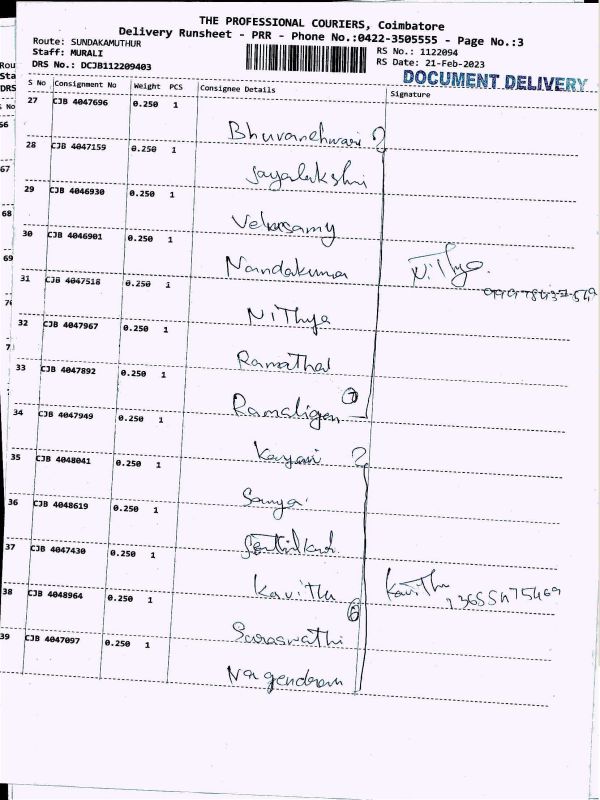 THE PROFESSIONAL COURIERS, Coimbatore
Delivery Runsheet - PRR - Phone No.:0422-3505555 - Page No.:3
Route: SUNDAKAMUTHUR
Staff: MURALI
DRS No.: DCJB112209403
RS No.: 1122094
RS Date: 21-Feb-2023
DOCUMENT DELIVERY
S No Consignment No Weight PCS Consignee Details Signature
27 CJB 4047696 0.250 1
Bhuvanehwari
28 CJB 4047159 0.250 1
Jayalakshmi
29 CJB 4046930 0.250 1
Velusamy
30 CJB 4046901 0.250 1
Nandakumar Nithya
31 CJB 4047518 0.250 1
Nithya
32 CJB 4047967 0.250 1
Ramathal
33 CJB 4047892 0.250 1
7
Ramaligam
34 CJB 4047949 0.250 1
Kayani
35 CJB 4048041 0.250 1
Sanya
36 CJB 4048619 0.250 1
37 CJB 4047430 0.250 1
Kavitha Kavitha
38 CJB 4048964 0.250 1
6
Saraswathi
39 CJB 4047097 0.250 1
Nagendran